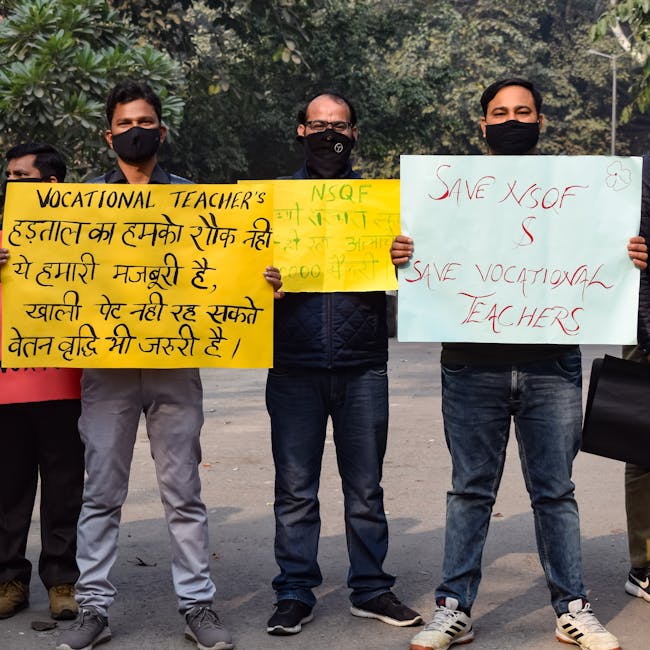 VOCATIONAL TEACHER'S
हड़ताल का हमको शौक नही
ये हमारी मजबूरी है,
खाली पेट नही रह सकते
वेतन वृद्धि भी जरुरी है ।
NSQF
SAVE NSQF
&
SAVE VOCATIONAL
TEACHERS